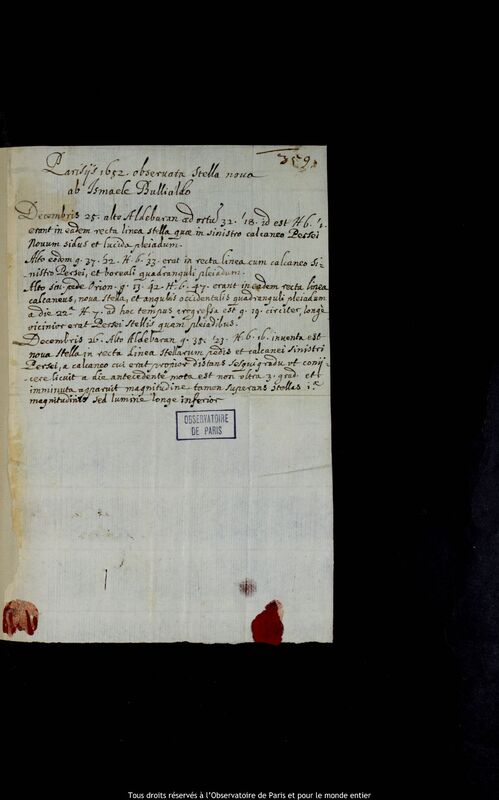 359.
Parisijs 1652. observata Stella nova
ab Ismaele Bullialdo
Decembris 25. alto Aldebaran ad ortū 32. '18. id est H. 6. '1.
erant in eadem recta linea stella quæ in sinistro calcaneo Persei
Novum sidus et lucida pleiadum.
Alto eodem g. 37. 52. H. 6. '33. erat in recta linea cum calcaneo Si-
nistro Persei, et boreali quadranguli pleiadum.
Alto sin. pede Orion. g. 13. 42. H. 6. 47. erant in eadem recta linea
calcaneus, nova Stella, et angulus occidentalis quadranguli pleiadum
a die 22.ª H. 7. ad hoc tempus progressa est g. 19. circiter, longe
vicinior erat Persei Stellis quam pleiadibus.
Decembris 26. Alto Aldebaran. g. 35. '23. H. 6. 16. inventa est
nova Stella in recta linea Stellarum pedis et calcanei sinistri
Persei, a calcaneo cui erat propior distans sesquigradu vt conij-
cere licuit a die antecedente mota est non ultra 3. grad. et
imminuta apparuit magnitudine tamen superans stellas 1.æ
magnitudinis sed lumine longe inferior
OBSERVATOIRE
DE PARIS
Tous droits réservés à l'Observatoire de Paris et pour le monde entier